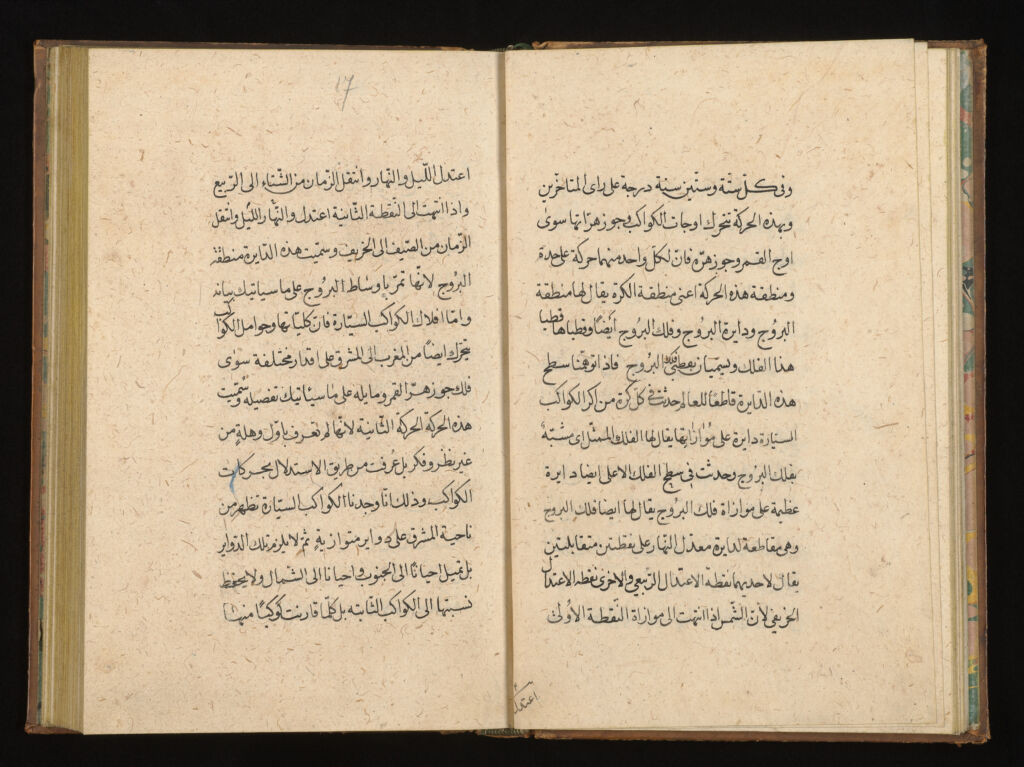 وفى كل ستة وستين سنة درجة على راى المتأخرين
وبهذه الحركة تتحرك اوجات الكواكب وجوزهراتها سوى
اوج القمر وجوزهره فان لكل واحد منهما حركة على حدة
ومنطقة هذه الحركة اعنى منطقة الكرة يقال لها منطقة
البروج ودايرة البروج وفلك البروج أيضًا وقطباها قطبا
هذا الفلك ويسميان بقطبى فلك البروج فاذا توهمنا سطح
هذه الدايرة قاطعًا للعالم حدثت فى كل كرة من اكر الكواكب
السيارة دايرة على موازاتها يقال لها الفلك الممثل اى مشبه
بفلك البروج وحدثت فى سطح الفلك الاعلى ايضا دايرة
عظيمة على موازاة فلك البروج يقال لها ايضا فلك البروج
وهى مقاطعة لدايرة معدل النهار على نقطتين متقابلتين
يقال لاحديهما نقطة الاعتدال الربيعى والاخرى نقطة الاعتدال
الخريفى لأن الشمس اذا انتهت الى موازاة النقطة الأولى
اعتدل
17
اعتدل الليل والنهار وانتقل الزمان من الشتاء الى الربيع
واذا انتهت الى النقطة الثانية اعتدل والنهار الليل وانتقل
الزمان من الصيف الى الخريف وسميت هذه الدايرة منطقة
البروج لانها تمر باوساط البروج على ما سياتيك بيانه
واما افلاك الكواكب السيارة فان كلياتها وحوامل الكواكب
تتحرك ايضًا من المغرب الى المشرق على اقدار مختلفة سوى
فلك جوزهر القمر ومايله على ما سيأتيك تفصيله وسميت
هذه الحركة الحركة الثانية لانها لم تعرف باول وهلةٍ من
غير نظر وفكر بل عُرفت من طريق الاستدلال بحركات
الكواكب وذلك انا وجدنا الكواكب السيارة تظهر من
ناحية المشرق على دواير متوازيةٍ ثم لا يلزم تلك الدواير
بل تميل احيانًا الى الجنوب واحيانا الى الشمال ولا يحفظ
نسبتها الى الكواكب الثابته بل كلما قارنت كوكبًا منها